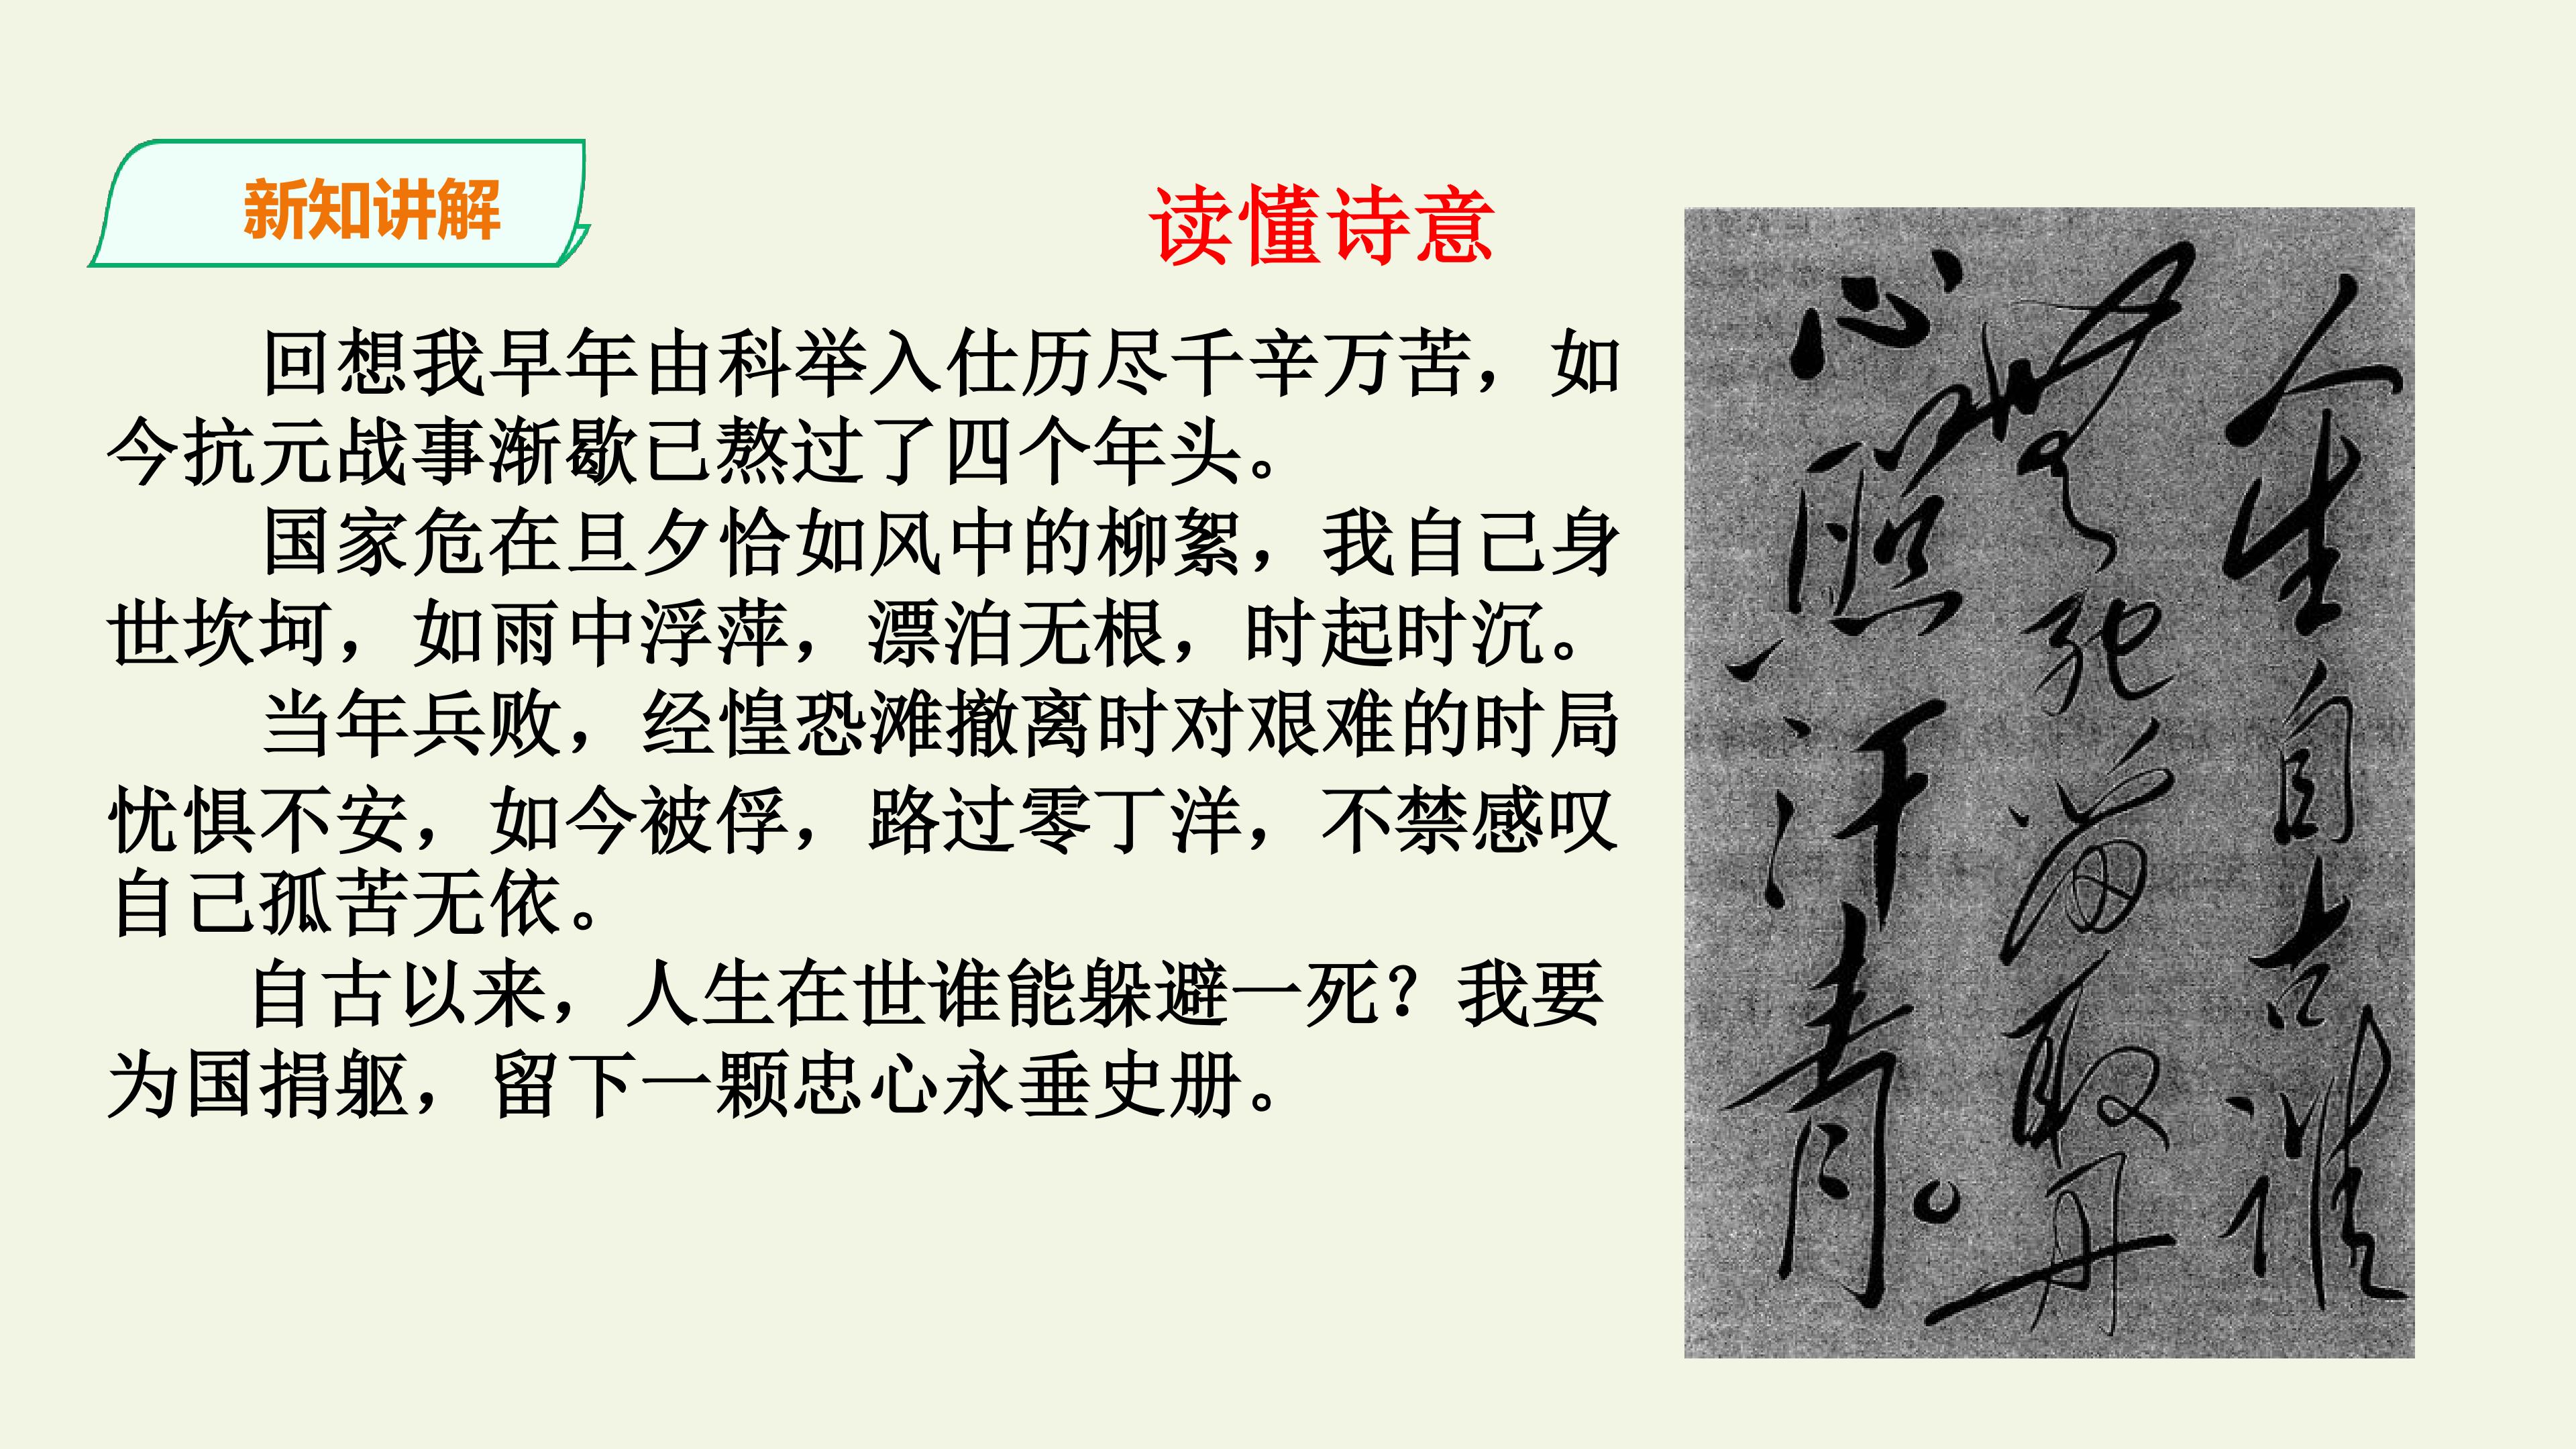 新知讲解
读懂诗意
回想我早年由科举入仕历尽千辛万苦，如
今抗元战事渐歇已熬过了四个年头。
国家危在旦夕恰如风中的柳絮，我自己身
世坎坷，如雨中浮萍，漂泊无根，时起时沉。
当年兵败，经惶恐滩撤离时对艰难的时局
忧惧不安，如今被俘，路过零丁洋，不禁感叹
自己孤苦无依。
自古以来，人生在世谁能躲避一死？我要
为国捐躯，留下一颗忠心永垂史册。
人生自古谁
无死留取丹
心照汗青。